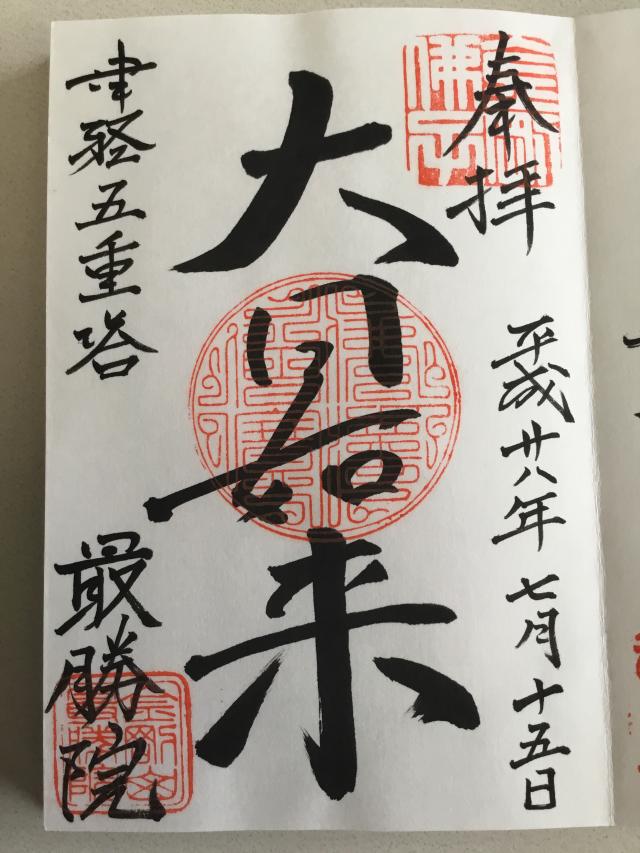 奉拝
平成廿八年七月十五日
大日如来
津軽五重塔
最勝院